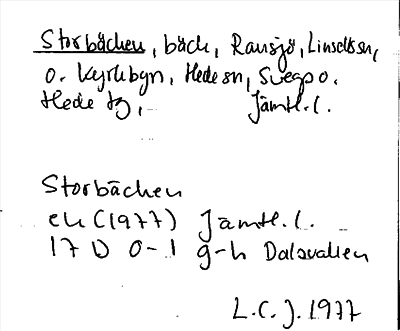 Storbäcken, bäck, Ransjö, Linsells sn,
o. Kyrkbyn, Hede sn, Svegs o.
Hede tg, Jämtl. l.
Storbäcken
ek (1977) Jämtl. l.
17 D 0-1 g-h Dalsvallen
L.C.J. 1977